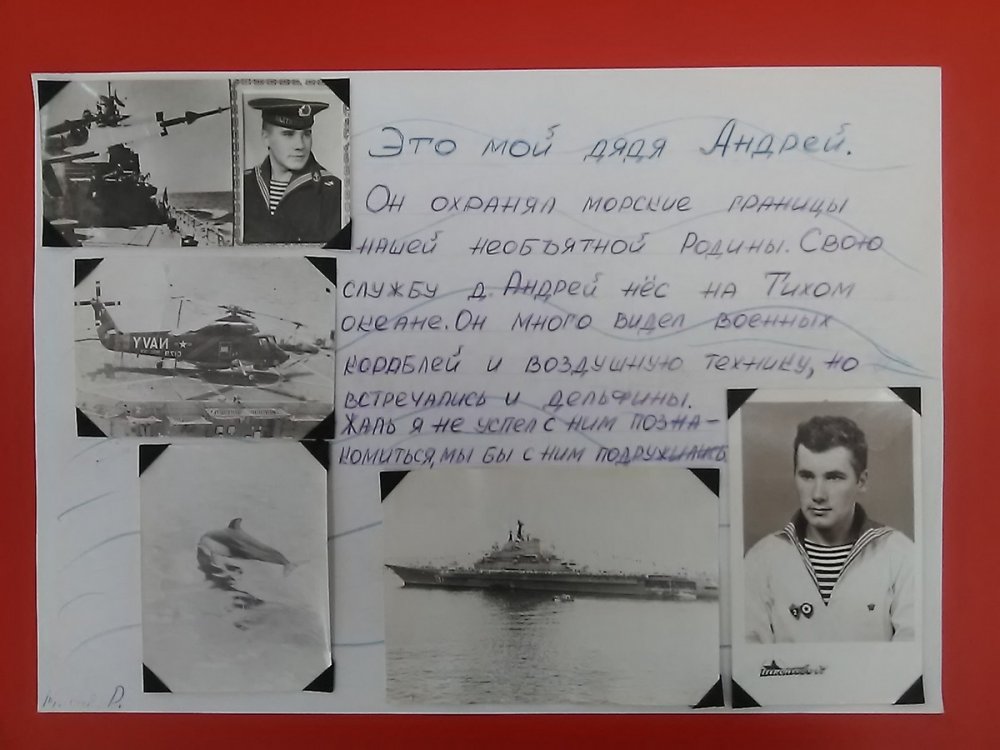 Это мой дядя Андрей.
Он охранял морские границы
нашей необъятной Родины. Свою
службу д. Андрей нёс на Тихом
океане. Он много видел военных
кораблей и воздушную технику, но
встречались и дельфины.
Жаль я не успел с ним позна-
комиться, мы бы с ним подружились
NAVY
Р.